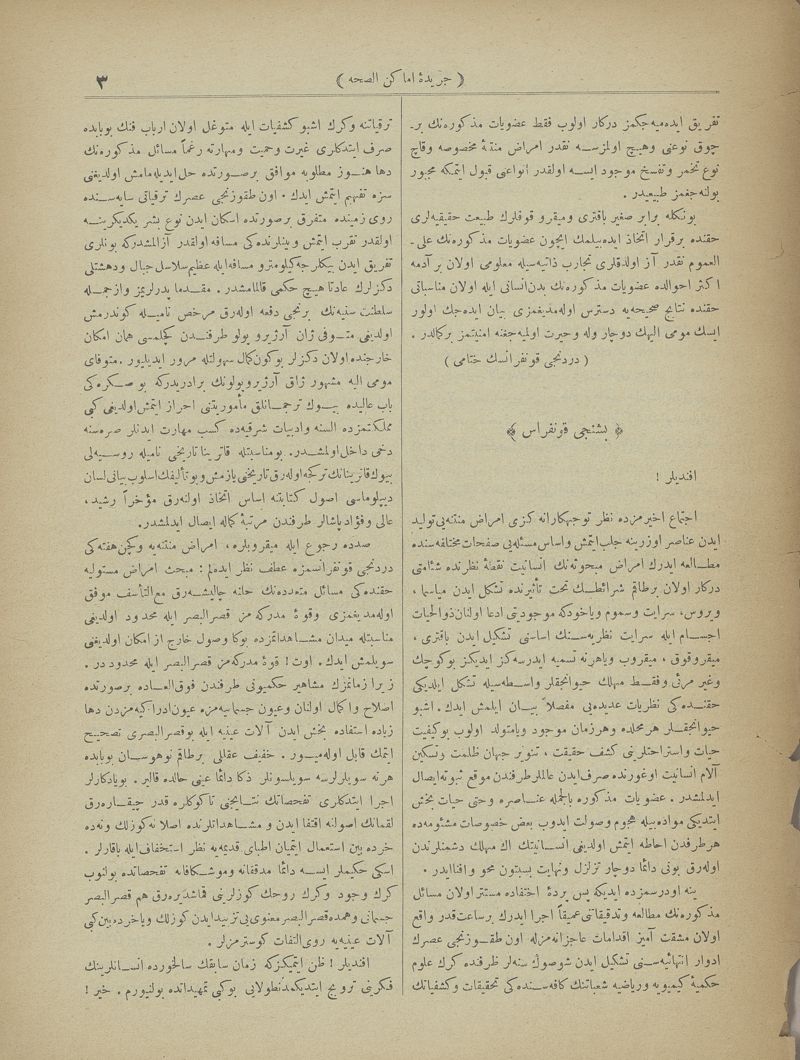 ﴿ جریدهٔ اماکن الصحه ﴾
٣
تفریق ایده‌میه‌جکمز درکار اولوب فقط عضویات مذکوره‌نك بر۔
چوق نوعی وهیچ اولمزسه نقدر امراض منتنهٔ مخصوصه وقاچ
نوع تخمر وتفسخ موجود ایسه اولقدر أنواعنی قبول ایتمکه مجبور
بولنه‌جغمز طبیعیدر .
بونکله برابر صغیر باقتری ومیقرو قوقلرك طبیعت حقیقیه‌لری
حقنده برقرار اتخاذ ایده‌بیلمك ایچون عضویات مذکوره‌نك علی۔
العموم نقدر آز اولدقلری تجارب ذاتیه‌سیله معلومی اولان برآدمه
اکثر احوالده عضویات مذکوره‌نك بدن‌انسانی ایله اولان مناسباتی
حقنده نتایج صحیحه‌یه دسترس اوله‌مدیغمزی بیان ایده‌جك اولور
ایسك مومی الیهك دوچار وله وحیرت اولمیه‌جغنه امنیتمز برکمالدر .
( دردنجی قونفرانسك ختامی )
﴿ بشنجی قونفراس ﴾
افندیلر !
اجتماع اخیرمزده نظر توجهکارانه کزی امراض منتنه‌یی تولید
ایدن عناصر اوزرینه جلب‌ایتمش واساس مسئله‌یی صفحات مختلفه‌سنده
مطالعه ایدرك امراض مبحوثه‌نك انسانیت نقطهٔ نظرنده شئامتی
درکار اولان برطاقم شرائطك تحت تأثیرنده تشکل ایدن میاسما ،
ویروس، سرایت وسموم ویاخودکه موجودیتی ادعا اولنان‌ذوالحیات
اجسام ایله سرایت نظریه‌سنك اساسنی تشکیل ایدن باقتری ،
میقروقوق ، میقروب ویاهرنه تسمیه ایدرسه‌کز ایدیکز بوکوچك
وغیر مرئی وفقط مهلك حیوانجقلر واسطه‌سیله تشکل ایلدیکی
حقنده‌کی نظریات عدیده‌یی مفصلاً بیان ایلمش ایدك . اشبو
حیوانجقلر هرمحلده وهرزمان موجود ویامتولد اولوب بوکیفیت
حیات واستراحتلرینی کشف حقیقت ، تنویر جهان ظلمت وتسکین
آلام انسانیت اوغورنده صرف‌ایدن عالملر طرفندن موقع ثبوته‌ایصال
ایدلمشدر . عضویات مذکوره بالجمله عناصره وحتی حیات بخش
ایتدیکی مواده‌بیله هجوم وصولت ایدوب بعض خصوصات مشئومه‌ده
هرطرفدن احاطه ایتمش اولدیغی انسانیتك اك مهلك دشمنلرندن
اوله‌رق بونی دائما دوچار تزلزل ونهایت بستبتون محو وافناایدر .
ینه اودرسمزده ایدیکه پس پردهٔ اختفاده مستتر اولان مسائل
مذکوره‌نك مطالعه وتدقیقاتنی‌عمیقاً اجرا ایدرك برساعت‌قدر واقع
اولان مشقت آمیز اقدامات عاجزانه‌مزله اون طقوزنجی عصرك
ادوار انتهائیه‌سنی تشکیل ایدن شوصوك سنه‌لر ظرفنده کرك علوم
حکمیهٔ کیمیویه وریاضیه شعباتنك کافه‌سنده‌کی تحقیقات وکشفیاتك
ترقیاتنه وکرك اشبو کشفیات ایله متوغل اولان ارباب فنك بوبابده
صرف ایتدکلری غیرت وحمیت ومهارته رغماً مسائل مذکوره‌نك
دها هنوز مطلوبه موافق برصورتده حل‌ایدیله‌مامش اولدیغنی
سزه تفهیم ایتمش ایدك . اون طقوزنجی عصرك ترقیاتی سایه‌سنده
روی زمینده متفرق برصورتده اسکان ایدن نوع بشر یکدیکرینه
اولقدر تقرب ایتمش وبینلرنده‌کی مسافه اولقدر آزالمشدرکه بونلری
تفریق ایدن بیکلرجه‌کیلومترو مسافه‌ایله عظیم‌سلاسل‌جبال ودهشتلی
دکزلرك عادتا هیچ حکمی قالمامشدر . مقدما پدرلریمز وازجمله
سلطنت سنیه‌نك برنجی دفعه اوله‌رق مرخص نامیله کوندرمش
اولدیغی متوفی ژان آرژیروپولو طرفندن کچلمسی همان امکان
خارجنده‌اولان دکزلر بوکون‌کمال سهولتله مرور ایدیلیور . متوفای
مومی الیه مشهور ژاق آرژیروپولونك برادریدرکه بوصکره‌کی
باب عالیده بیوك ترجمانلق مأموریتنی احراز ایتمش‌اولدیغی کبی
مملکتمزده السنه وادبیات شرقیه‌ده کسب مهارت ایدنلر صره‌سنه
دخی داخل‌اولمشدر. بومناسبتله قاترینا تاریخی نامیله روسیه‌لی
بیوك‌قاترینانك‌ترکجه‌اوله‌رق‌تاریخنی‌یازمش‌وبوتألیفك‌اسلوب‌بیانی‌لسان
دیپلوماسی اصول کتابتنه اساس اتخاذ اولنه‌رق مؤخراً رشید،
عالی وفؤادپاشالر طرفندن مرتبهٔ کماله ایصال ایدلمشدر.
صدده رجوع ایله میقروبلره ، امراض منتنه‌یه وکچن‌هفته‌کی
دردنجی قونفرانسمزه عطف نظر ایده‌لم : مبحث امراض مستولیه
حقنده‌کی مسائل متعدده‌نك حلنه چالیشه‌رق مع‌التأسف موفق
اوله‌مدیغمزی وقوهٔ مدرکه‌مزك قصرالبصر ایله محدود اولدیغی
مناسبتله میدان مشاهداتمزده بوکا وصول خارج از امکان اولدیغنی
سویلمش ایدك . اوت ! قوهٔ مدرکه‌مز قصرالبصر ایله محدوددر .
زیرا زمانمزك مشاهیر حکمیونی طرفندن فوق‌العاده برصورتده
اصلاح واکمال اولنان وعیون جسمانیه‌مزه عیون‌ادراکیه‌مزدن دها
زیاده استفاده بخش ایدن آلات عینیه ایله بوقصرالبصری تصحیح
ایتمك قابل اوله‌میور . خفیف عقللی برطاقم نوهوسان بوبابده
هرنه سویلرلرسه سویلسونلر ذکا دائما عینی حالده قالیر . بویادکارلر
اجرا ایتدکلری تفحصاتك نتایجنی تاکوکلره قدر چیقاره‌رق
لقمانك اصولنه اقتفا ایدن ومشاهداتلرنده اصلا نه‌کوزلك ونه‌ده
خرده بین استعمال ایتمیان اطبای قدیمه‌یه نظر استخفاف‌ایله باقارلر .
اسکی حکیملر ایسه دائما مدققانه وموشکافانه تفحصاتده بولنوب
کرك وجود وکرك روحك کوزلرینی قماشدیره‌رق هم قصرالبصر
جسمانی وهمده‌قصرالبصر معنوی‌یی تزیید ایدن کوزلك ویاخرده‌بین‌کبی
آلات عینیه‌یه روی‌التفات کوسترمزلر .
افندیلر ! ظن ایتمیکزکه زمان سابقك سالخورده انسانلرینك
فکرینی ترویج ایتدیکمدنطولایی بوکبی تمهیداتده بولنیورم . خیر !